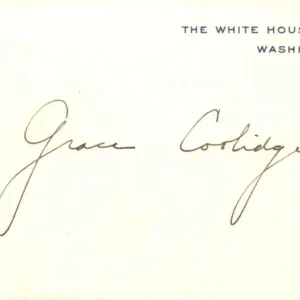 THE WHITE HOUS
WASHI
Grace Coolidge